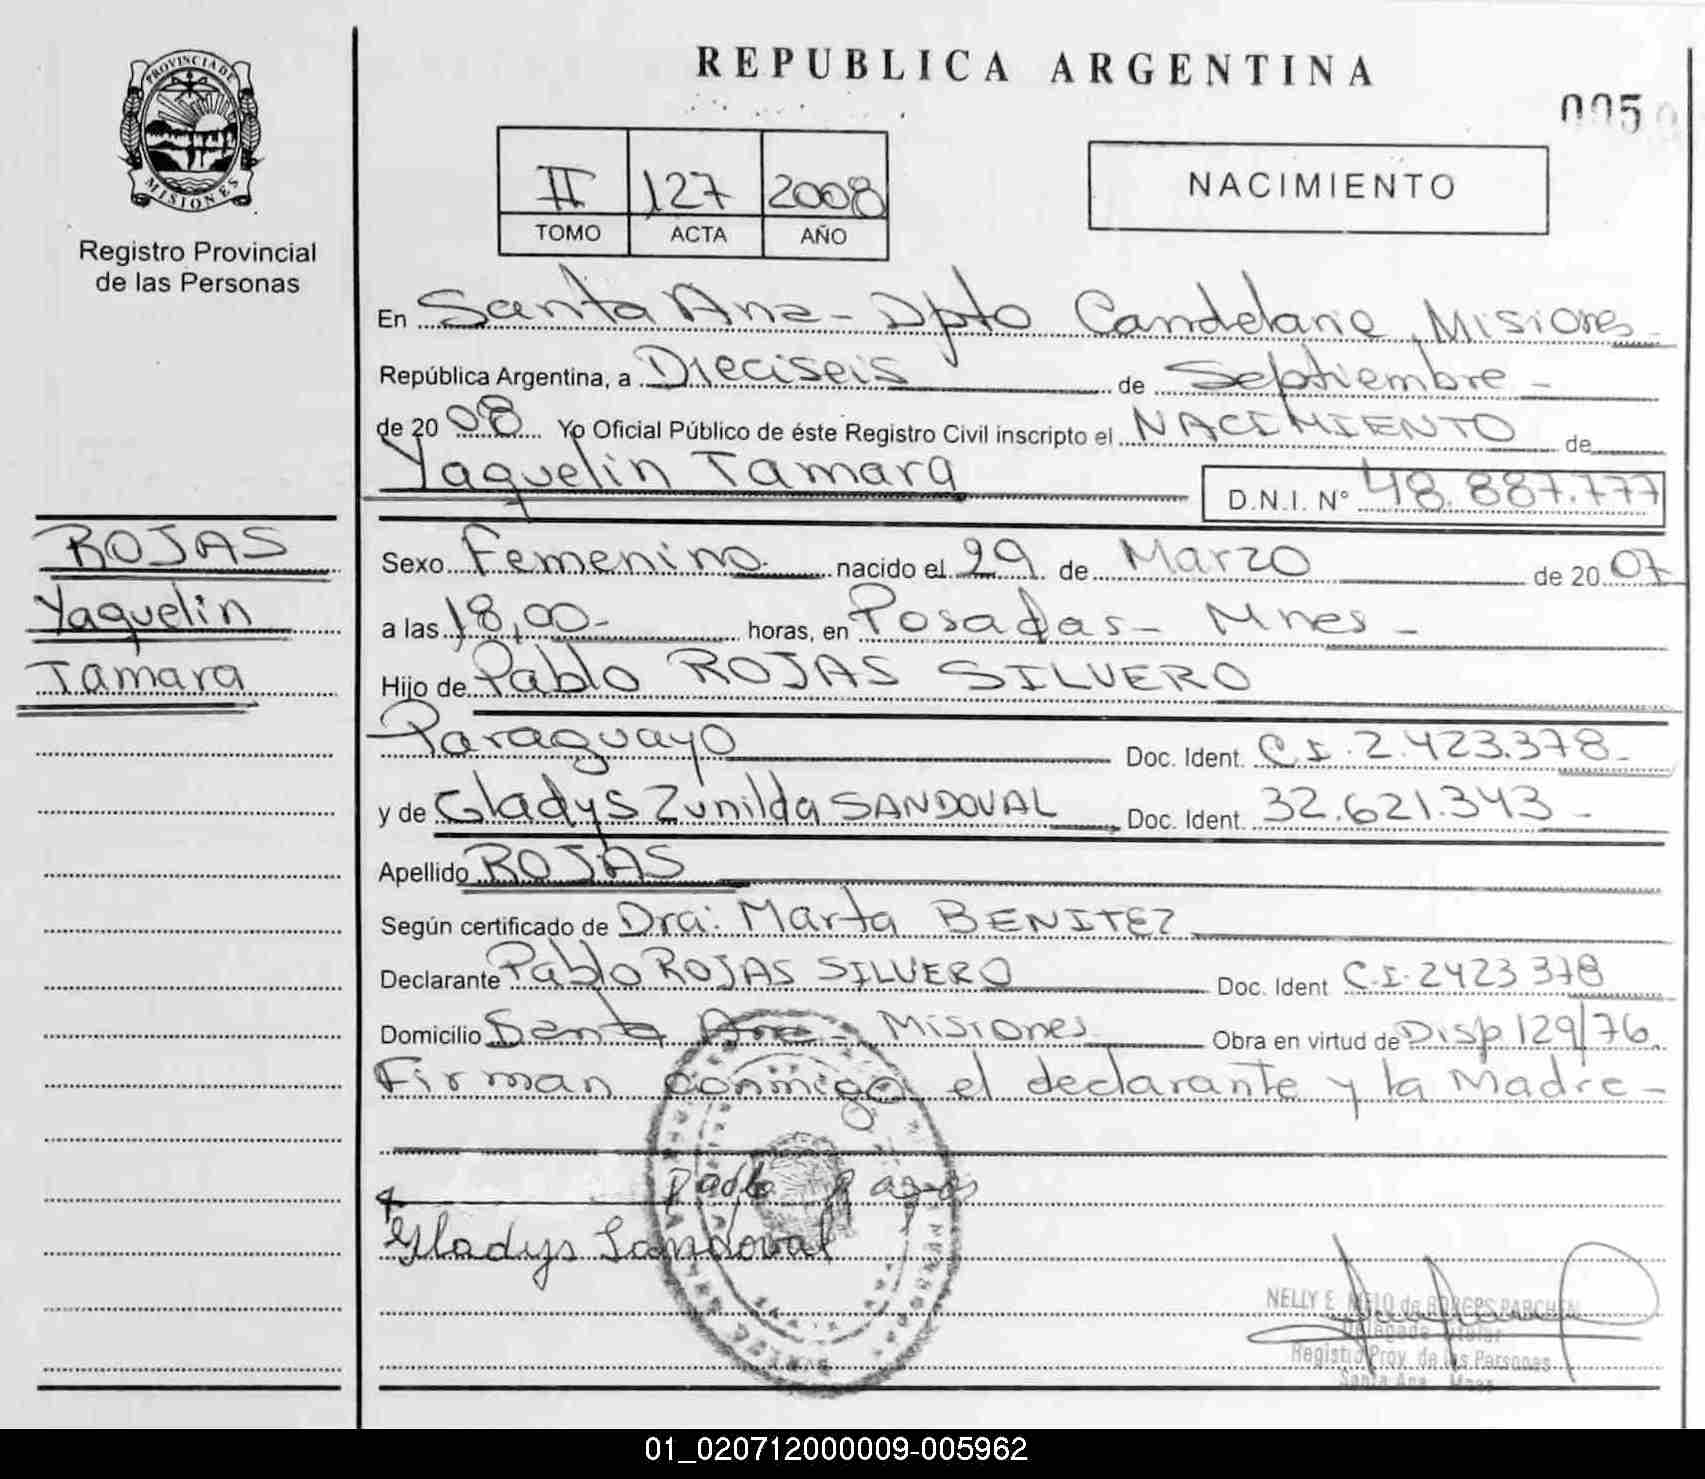 REPUBLICA ARGENTINA
005
PROVINCIA DE
MISIONES
Registro Provincial
de las Personas
II 127 2008
TOMO ACTA AÑO
NACIMIENTO
En Santa Ana - Dpto Candelaria, Misiones -
República Argentina, a Dieciseis de Septiembre -
de 2008 Yo Oficial Público de éste Registro Civil inscripto el NACIMIENTO de
Yaquelin Tamara D.N.I. Nº 48.887.777
ROJAS
Yaquelin
Tamara
Sexo Femenino nacido el 29 de Marzo de 2007
a las 18,00- horas, en Posadas - Mnes -
Hijo de Pablo ROJAS SILVERO
Paraguayo Doc. Ident. C.I. 2.423.378-
y de Gladys Zunilda SANDOVAL Doc. Ident. 32.621.343 -
Apellido ROJAS
Según certificado de Dra: Marta BENITEZ
Declarante Pablo ROJAS SILVERO Doc. Ident C.I. 2423378
Domicilio Santa Ana - Misiones Obra en virtud de Disp 129/76.
Firman conmigo el declarante y la Madre -
Pablo
Gladys Sandoval
NELLY E. MELO de
Delegada Titular
Registro Prov. de las Personas
Santa Ana Mnes
01_020712000009-005962